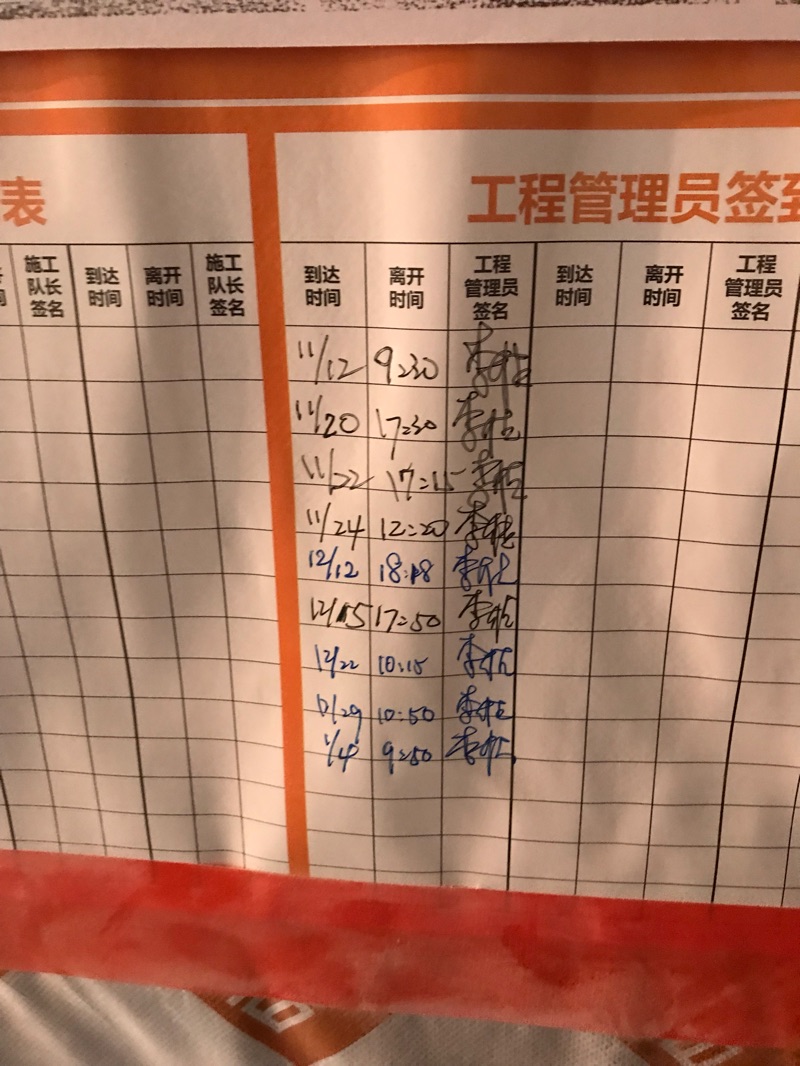 表
工程管理员签到
施工队长签名 到达时间 离开时间 施工队长签名
到达时间 离开时间 工程管理员签名 到达时间 离开时间 工程管理员签名
11/12 9:30 李
11/20 17:30 李
11/22 17:15 李
11/24 12:20 李
12/12 18:18 李
12/15 17:50 李
12/22 10:15 李
12/29 10:50 李
1/4 9:50 李